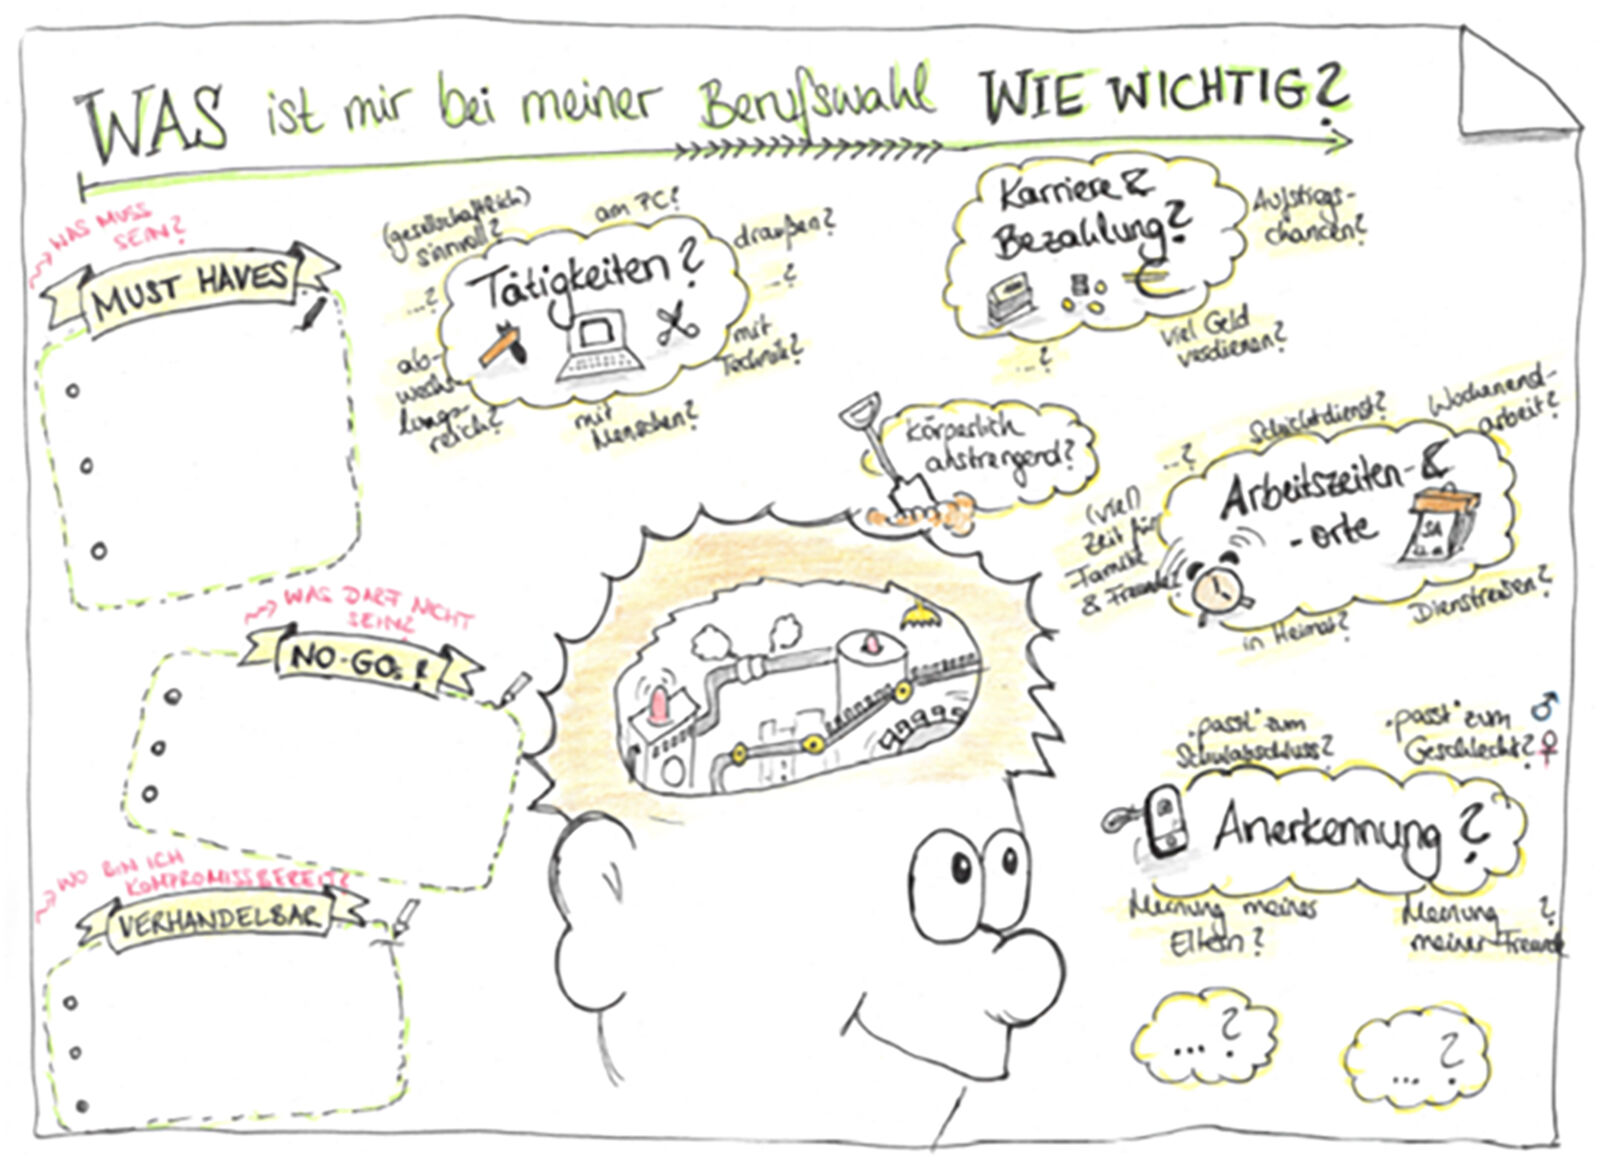 WAS ist mir bei meiner Berufswahl WIE WICHTIG?
WAS MUSS
SEIN?
MUST HAVES
(gesellschaftlich)
sinnvoll?
am PC?
draußen?
...?
...?
Tätigkeiten?
ab-
wechs-
lungs-
reich?
mit
Menschen?
mit
Technik?
Karriere &
Bezahlung?
Aufstiegs-
chancen?
viel Geld
verdienen?
...?
körperlich
anstrengend?
Schichtdienst?
Wochenend-
arbeit?
...?
Arbeitszeiten- &
- orte
SA
(viel)
Zeit für
Familie
& Freunde?
in Heimat?
Dienstreisen?
WAS DARF NICHT
SEIN?
NO-GOs!
"passt" zum
Schulabschluss?
"passt" zum
Geschlecht?
Anerkennung?
Meinung meiner
Eltern?
Meinung
meiner Freunde?
WO BIN ICH
KOMPROMISSBEREIT?
VERHANDELBAR
...?
...?